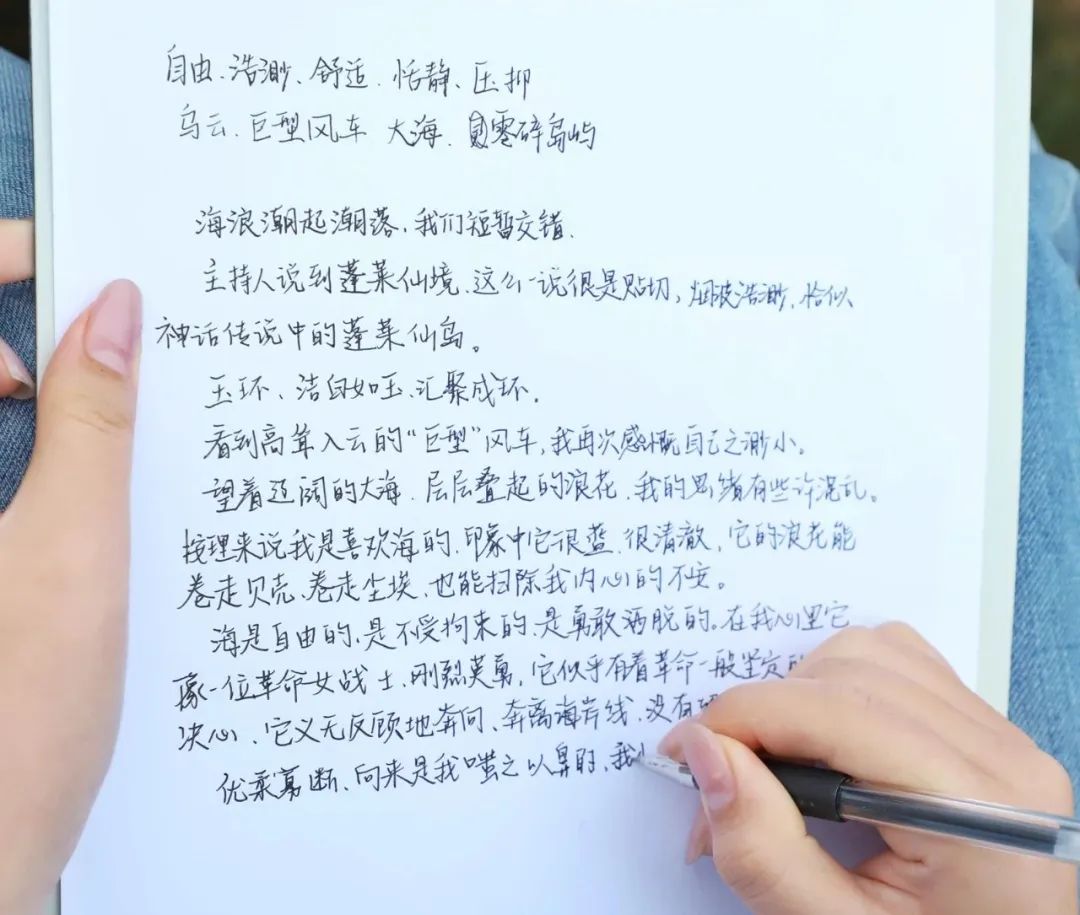 自由、浩渺、舒适、恬静、压抑
乌云、巨型风车 大海、零碎岛屿
海浪潮起潮落,我们短暂交错.
主持人说到蓬莱仙境、这么一说很是贴切、烟波浩渺、恰似
神话传说中的蓬莱仙岛。
玉环、洁白如玉、汇聚成环.
看到高耸入云的“巨型”风车,我再次感慨自己之渺小。
望着辽阔的大海、层层叠起的浪花、我的思绪有些许混乱。
按理来说我是喜欢海的、印象中它很蓝、很清澈,它的浪花能
卷走贝壳、卷走尘埃、也能扫除我内心的不安。
海是自由的、是不受拘束的、是勇敢洒脱的。在我心里它
像一位革命女战士、刚烈英勇,它似乎有着革命一般坚定的
决心、它义无反顾地奔向、奔离海岸线、没有
优柔寡断、向来是我嗤之以鼻的、我